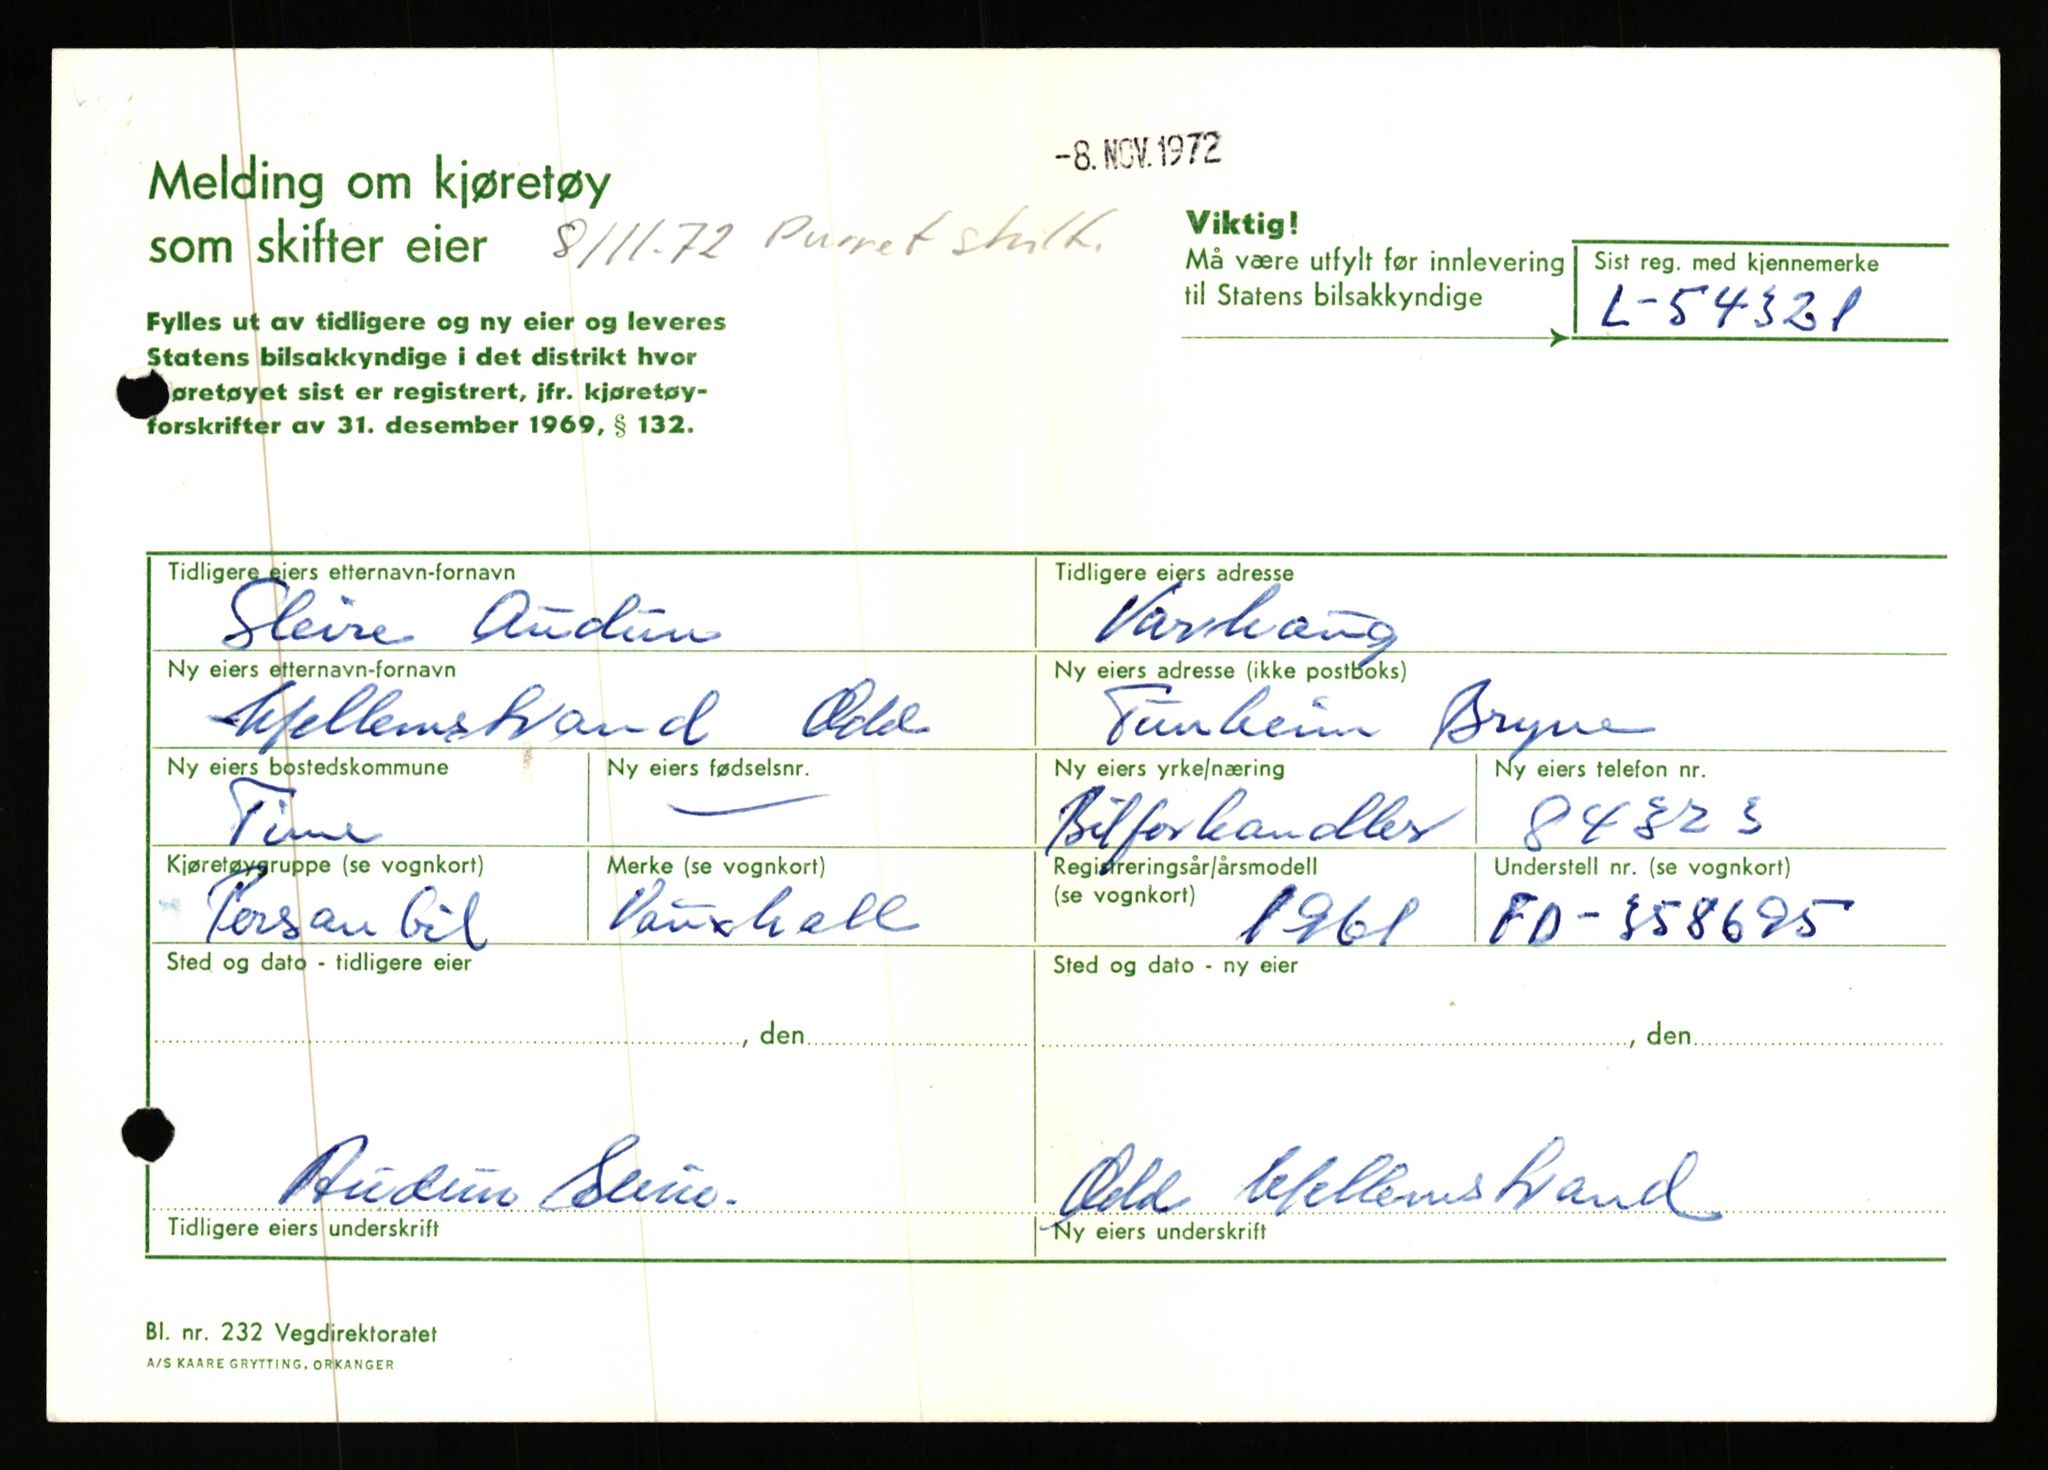 -8. NOV. 1972
Melding om kjøretøy
som skifter eier
8/11-72 Purret skilt.
Viktig!
Må være utfylt før innlevering
til Statens bilsakkyndige
Sist reg. med kjennemerke
L-54321
Fylles ut av tidligere og ny eier og leveres
Statens bilsakkyndige i det distrikt hvor
øretøyet sist er registrert, jfr. kjøretøy-
forskrifter av 31. desember 1969, § 132.
Tidligere eiers etternavn-fornavn
Sleire Audun
Tidligere eiers adresse
Varhaug
Ny eiers etternavn-fornavn
Kjellemstrand Odd
Ny eiers adresse (ikke postboks)
Tunheim Bryne
Ny eiers bostedskommune
Time
Ny eiers fødselsnr.
—
Ny eiers yrke/næring
Bilforhandler
Ny eiers telefon nr.
84323
Kjøretøygruppe (se vognkort)
Personbil
Merke (se vognkort)
Vauxhall
Registreringsår/årsmodell
(se vognkort)
1961
Understell nr. (se vognkort)
FD-358695
Sted og dato - tidligere eier
Sted og dato - ny eier
, den
, den
Audun Sleire.
Odd Kjellemstrand
Tidligere eiers underskrift
Ny eiers underskrift
Bl. nr. 232 Vegdirektoratet
A/S KAARE GRYTTING, ORKANGER